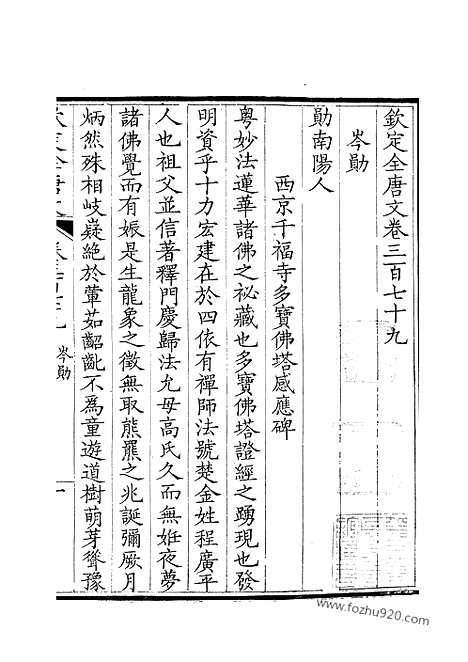 欽定全唐文卷三百七十九
岑勛
勛南陽人
西京千福寺多寶佛塔感應碑
粵妙法蓮華諸佛之祕藏也多寶佛塔證經之踴現也發
明資乎十力宏建在於四依有禪師法號楚金姓程廣平
人也祖父並信著釋門慶歸法允母高氏久而無妊夜夢
諸佛覺而有娠是生龍象之徵無取熊羆之兆誕彌厥月
炳然殊相岐嶷絕於葷茹齠齔不爲童遊道樹萌芽聳豫
岑勛
一
www.fozhu920.com